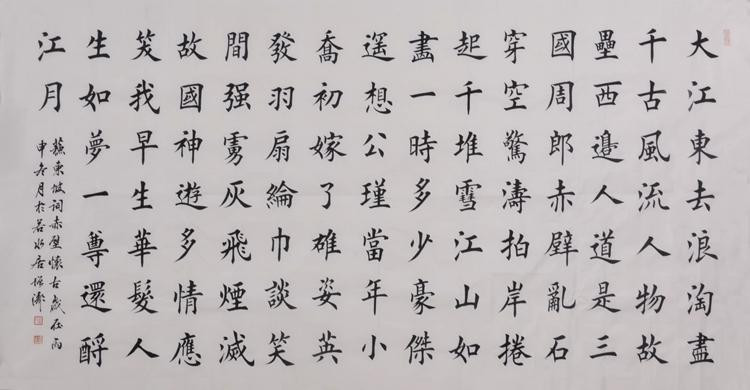 大江東去浪淘盡
千古風流人物故
壘西邊人道是三
國周郎赤壁亂石
穿空驚濤拍岸捲
起千堆雪江山如
畫一時多少豪傑
遥想公瑾當年小
喬初嫁了雄姿英
發羽扇綸巾談笑
間强虜灰飛煙滅
故國神遊多情應
笑我早生華髮人
生如夢一尊還酹
江月
蘇東坡詞赤壁懷古歲在丙
申冬月於若水居